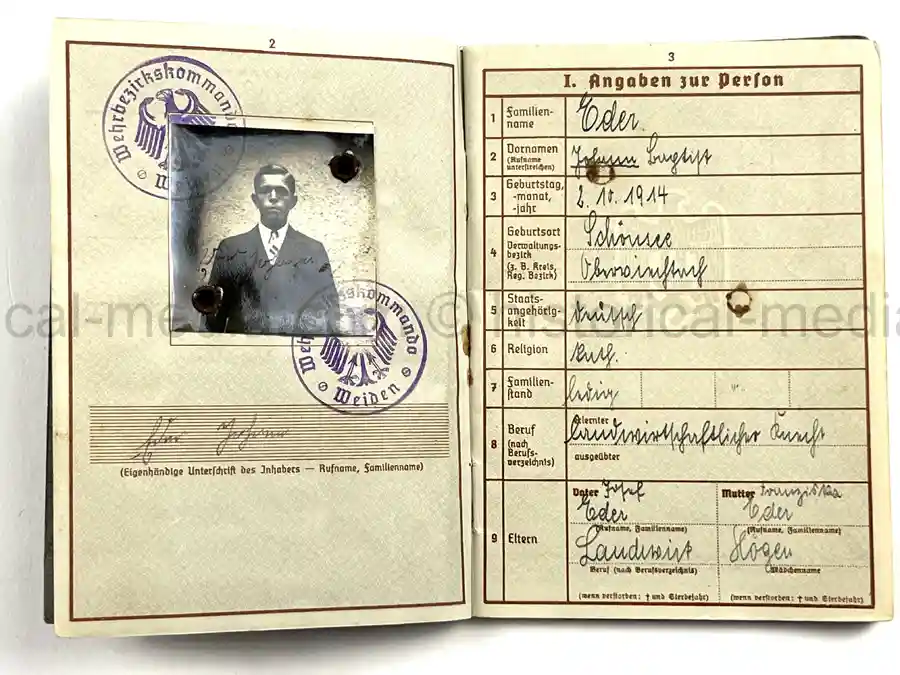 2
Wehrbezirkskommando
Wehrbezirkskommando
Weiden
Eder Johann
(Eigenhändige Unterschrift des Inhabers — Rufname, Familienname)
3
I. Angaben zur Person
1 Familien-
name
Eder
2 Vornamen
(Rufname
unterstreichen)
Johann Baptist
3 Geburtstag,
-monat,
-jahr
2. 10. 1914
4 Geburtsort
Verwaltungs-
bezirk
(z. B. Kreis,
Reg. Bezirk)
Schönsee
Oberviechtach
5 Staats-
angehörig-
keit
deutsch
6 Religion
kath.
7 Familien-
stand
ledig
8 Beruf
(nach
Berufs-
verzeichnis)
erlernter
Landwirtschaftlicher Knecht
ausgeübter
9 Eltern
Vater Josef
Eder
(Rufname, Familienname)
Landwirt
Beruf (nach Berufsverzeichnis)
(wenn verstorben: † und Sterbejahr)
Mutter Franziska
Eder
(Rufname, Familienname)
Högen
Mädchenname
(wenn verstorben: † und Sterbejahr)
cal-me © historical-media